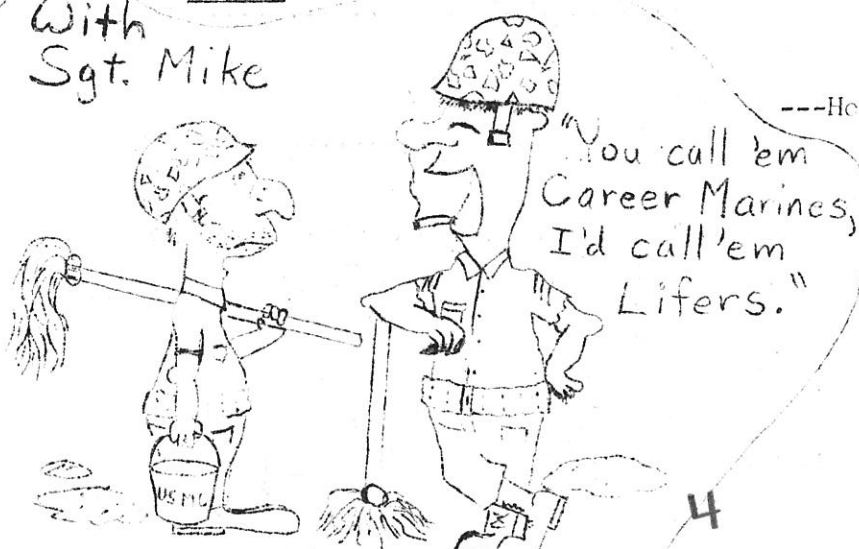 With
Sgt. Mike
---Ho
"You call 'em
Career Marines,
I'd call 'em
Lifers."
USMC
4